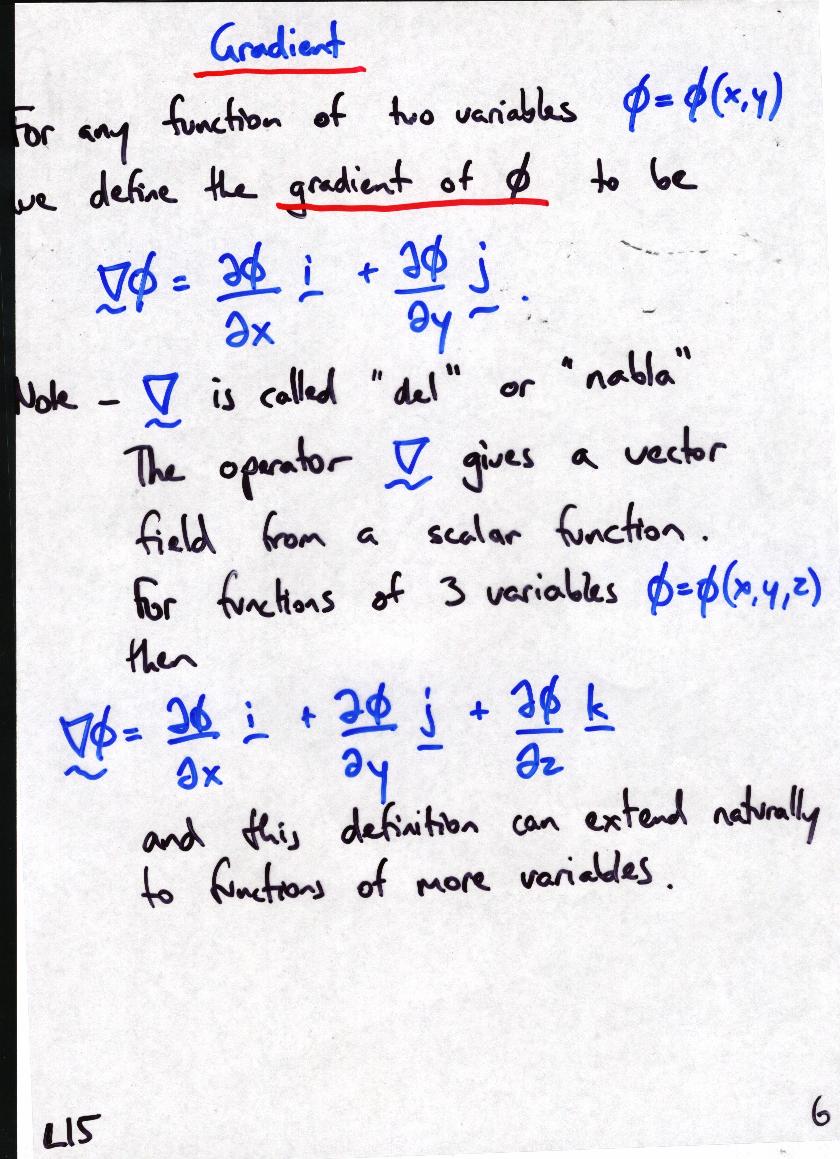 Gradient
For any function of two variables ϕ = ϕ(x,y)
we define the gradient of ϕ to be
∇ϕ = ∂ϕ/∂x i + ∂ϕ/∂y j .
Note - ∇ is called "del" or "nabla"
The operator ∇ gives a vector
field from a scalar function.
For functions of 3 variables ϕ=ϕ(x,y,z)
then
∇ϕ = ∂ϕ/∂x i + ∂ϕ/∂y j + ∂ϕ/∂z k
and this definition can extend naturally
to functions of more variables.
L15
6